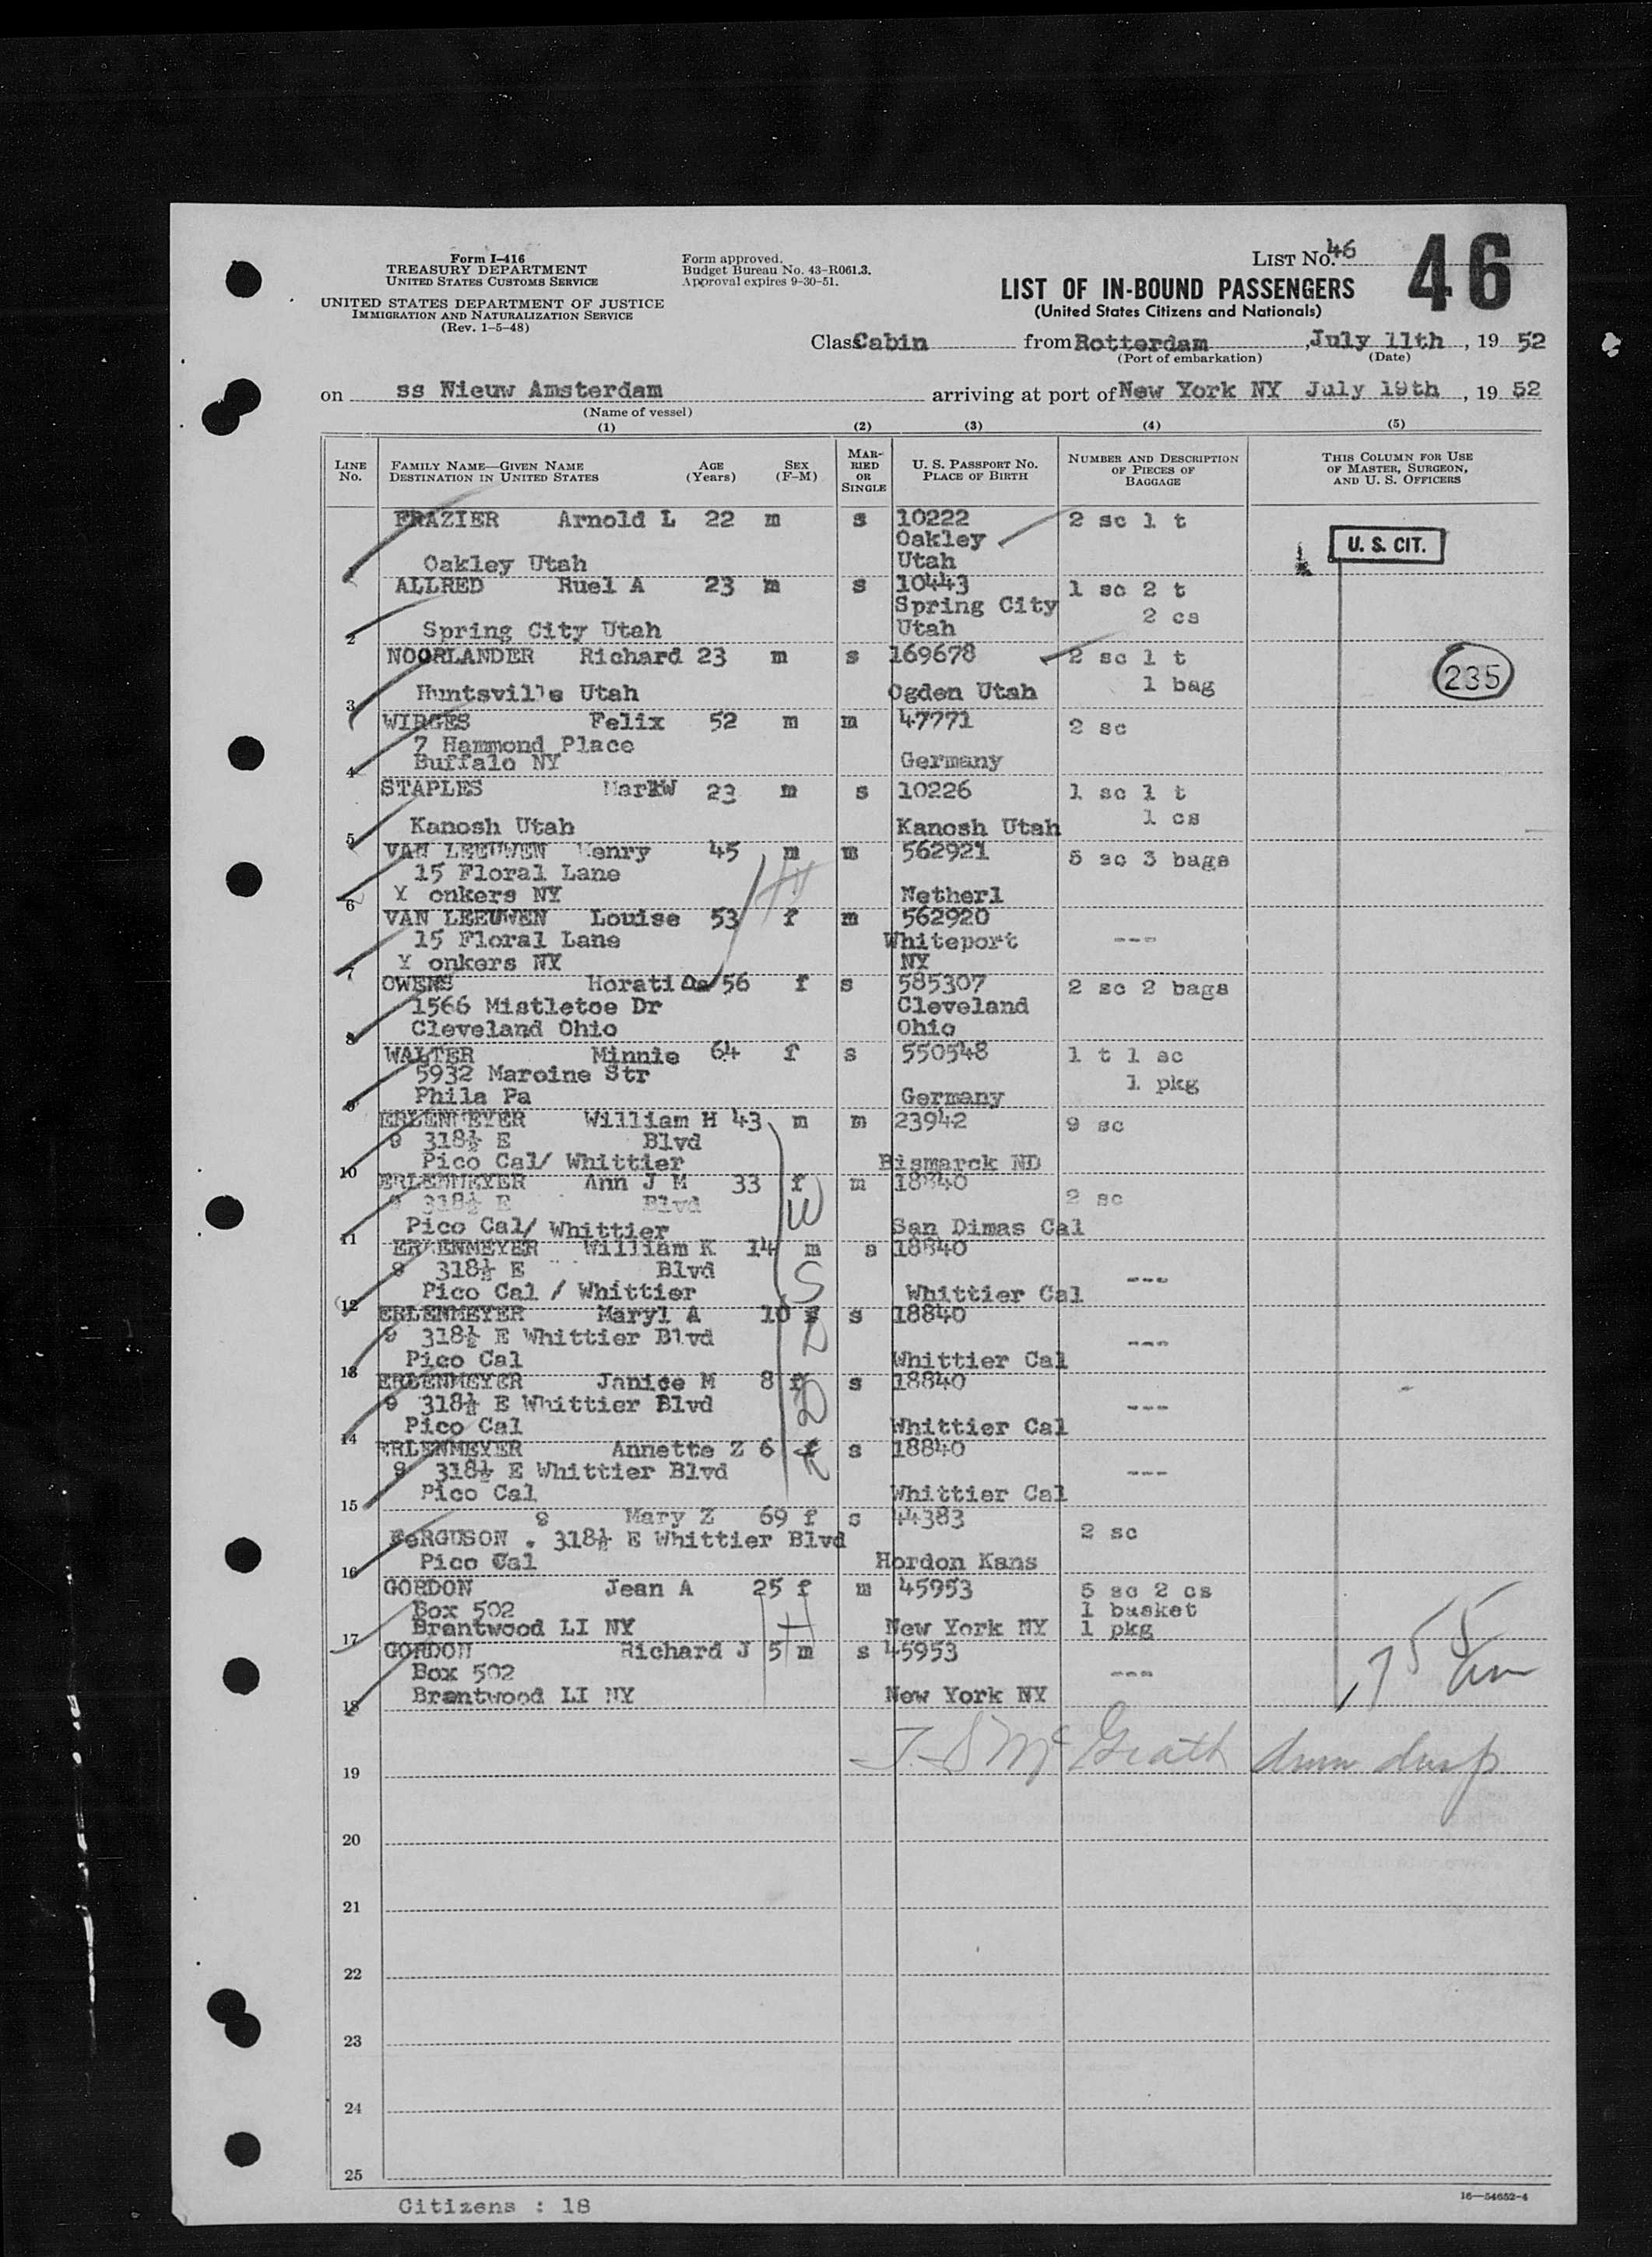 Form I-416
TREASURY DEPARTMENT
UNITED STATES CUSTOMS SERVICE
UNITED STATES DEPARTMENT OF JUSTICE
IMMIGRATION AND NATURALIZATION SERVICE
(Rev. 1-5-48)
Form approved.
Budget Bureau No. 43-R061.3.
Approval expires 9-30-51.
LIST No. 46
46
LIST OF IN-BOUND PASSENGERS
(United States Citizens and Nationals)
Class Cabin from Rotterdam , July 11th , 19 52
(Port of embarkation) (Date)
on ss Nieuw Amsterdam arriving at port of New York NY July 19th , 19 52
(Name of vessel)
(1) (2) (3) (4) (5)
LINE No.
FAMILY NAME—GIVEN NAME
DESTINATION IN UNITED STATES
AGE (Years)
SEX (F-M)
MARRIED OR SINGLE
U. S. PASSPORT NO.
PLACE OF BIRTH
NUMBER AND DESCRIPTION OF PIECES OF BAGGAGE
THIS COLUMN FOR USE OF MASTER, SURGEON, AND U. S. OFFICERS
FRAZIER Arnold L 22 m s 10222 2 sc 1 t
Oakley
U. S. CIT.
1 Oakley Utah Utah
ALLRED Ruel A 23 m s 10443 1 sc 2 t
Spring City 2 cs
2 Spring City Utah Utah
NOORLANDER Richard 23 m s 169678 2 sc 1 t
235
3 Huntsville Utah Ogden Utah 1 bag
WIRGES Felix 52 m m 47771 2 sc
7 Hammond Place
4 Buffalo NY Germany
STAPLES MarkW 23 m s 10226 1 sc 1 t
1 cs
5 Kanosh Utah Kanosh Utah
VAN LEEUWEN Henry 45 m m 562921 5 sc 3 bags
15 Floral Lane
6 Y onkers NY Netherl
VAN LEEUWEN Louise 53 f m 562920
15 Floral Lane Whiteport ---
7 Y onkers NY NY
OWENS Horatia 56 f s 585307 2 sc 2 bags
1566 Mistletoe Dr Cleveland
8 Cleveland Ohio Ohio
WALTER Minnie 64 f s 550548 1 t 1 sc
5932 Maroine Str 1 pkg
9 Phila Pa Germany
ERLENMEYER William H 43 m m 23942 9 sc
9 318½ E Blvd
10 Pico Cal/ Whittier Bismarck ND
ERLENMEYER Ann J M 33 f m 18840 2 sc
9 318½ E Blvd
11 Pico Cal/ Whittier San Dimas Cal
ERLENMEYER William K 14 m s 18840
9 318½ E Blvd ---
12 Pico Cal / Whittier Whittier Cal
ERLENMEYER Maryl A 10 f s 18840
9 318½ E Whittier Blvd ---
13 Pico Cal Whittier Cal
ERLENMEYER Janice M 8 f s 18840
9 318½ E Whittier Blvd ---
14 Pico Cal Whittier Cal
ERLENMEYER Annette Z 6 f s 18840
9 318½ E Whittier Blvd ---
15 Pico Cal Whittier Cal
9 Mary Z 69 f s 44383 2 sc
FeRGUSON . 318½ E Whittier Blvd
16 Pico Cal Hordon Kans
GORDON Jean A 25 f m 45953 5 sc 2 cs
Box 502 1 basket
17 Brantwood LI NY New York NY 1 pkg
GORDON Richard J 5 m s 45953
Box 502 ---
18 Brantwood LI NY New York NY
19 T. S McGrath
20
21
22
23
24
25
Citizens : 18
16—54652-4